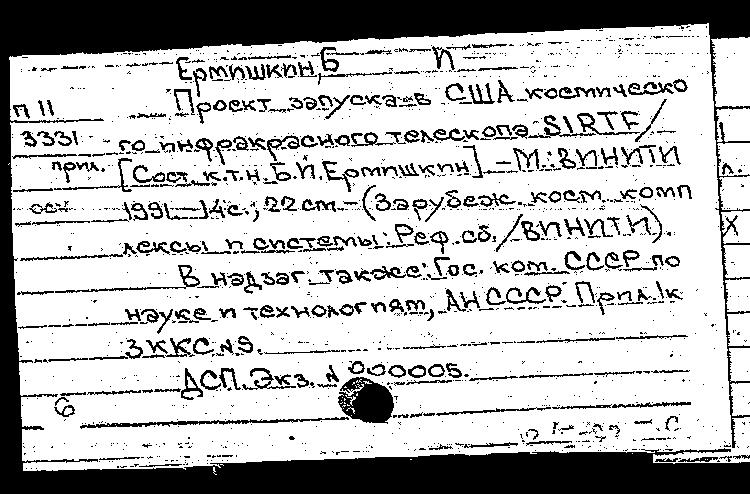 Ермишкин, Б И
П 11
3331
прил.
осн
Проект запуска в США космическо
го инфракрасного телескопа SIRTF/
[Сост. к.т.н. Б.И. Ермишкин]. – М.: ВИНИТИ
1991. – 14 с.; 22 см. – (Зарубеж. косм. комп
лексы и системы: Реф. сб. / ВИНИТИ).
В надзаг. также: Гос. ком. СССР по
науке и технологиям, АН СССР. Прил. 1 к
ЗККС № 9.
ДСП. Экз. № 000005.
6